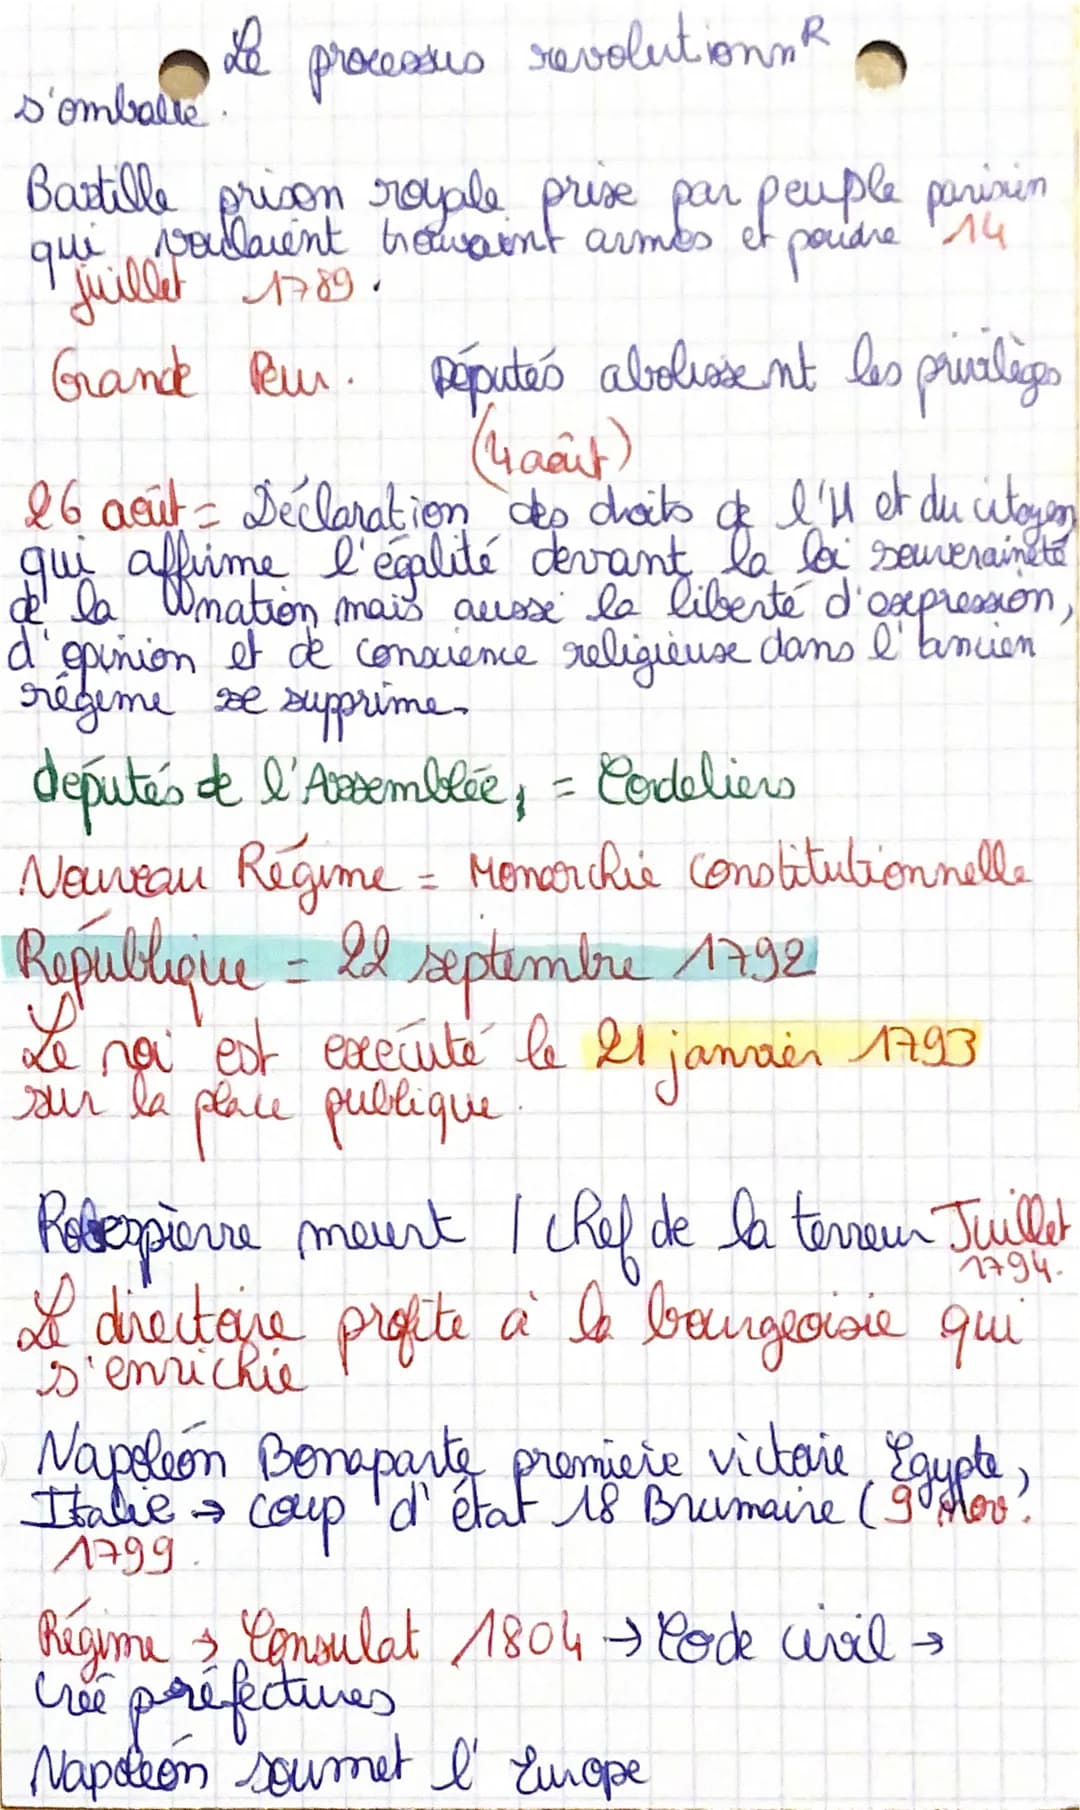 Le processus revolutionnR
s'emballe.
Bastille prison royale prise par peuple parisien
qui voulaient trouvaient armes et poudre 14
juillet 1789.
Grande Peur. Députés abolissent les privilèges
(4 août)
26 août = Déclaration des droits de l'H et du citoyen
qui affirme l'égalité devant la loi souveraineté
de la nation mais aussi la liberté d'expression,
d'opinion et de conscience religieuse dans l'ancien
régime se supprime.
députés de l'Assemblée, = Cordeliers
Nouveau Régime = Monarchie Constitutionnelle
République = 22 septembre 1792
Le roi est executé le 21 janvier 1793
sur la place publique.
Robespierre meurt / Chef de la terreur Juillet
1794.
Le directoire profite à la bourgeoisie qui
s'enrichie
Napoléon Bonaparte premiere victoire Egypte,
Italie → coup d'état 18 Brumaire (9 Nov.
1799.
Régime → Consulat 1804 → Code civil →
créé préfectures
Napoléon soumet l'Europe